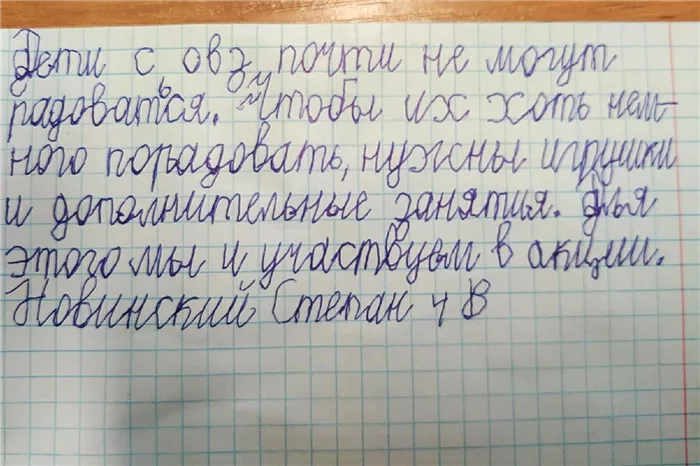 Дети с овз почти не могут
радоваться. Чтобы их хоть нем-
ного порадовать, нужны игрушки
и дополнительные занятия. Для
этого мы и участвуем в акции.
Новинский Степан 4 В